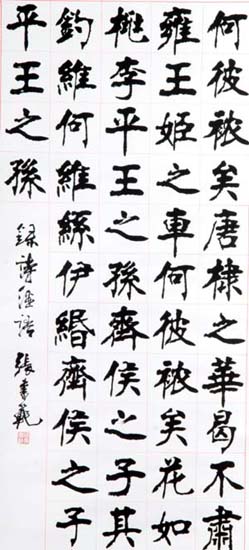 何彼秾矣唐棣之華曷不肅
雍王姬之車何彼秾矣花如
桃李平王之孫齊侯之子其
釣維何維絲伊緡齊侯之子
平王之孫
錄詩經語 張書範